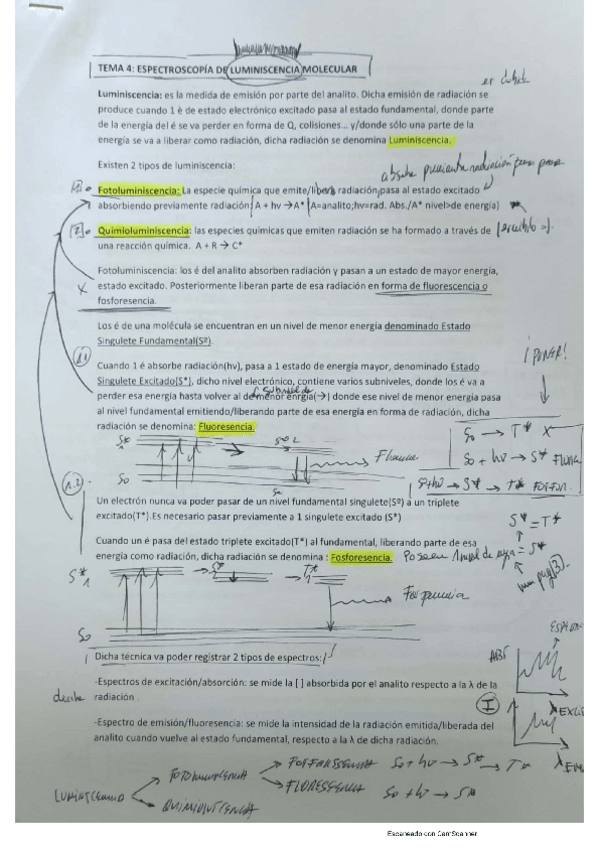 TEMA 4: ESPECTROSCOPÍA DE LUMINISCENCIA MOLECULAR
Luminiscencia: es la medida de emisión por parte del analito. Dicha emisión de radiación se
produce cuando 1 é de estado electrónico excitado pasa al estado fundamental, donde parte
de la energía del é se va perder en forma de Q, colisiones... y/donde sólo una parte de la
energía se va a liberar como radiación, dicha radiación se denomina Luminiscencia.
Existen 2 tipos de luminiscencia:
absorbe previamente radiación para pasar
Fotoluminiscencia: La especie química que emite/libera radiación,pasa al estado excitado
absorbiendo previamente radiación A + hv →A* A=analito;hv=rad. Abs./A* nivel>de energía)
Quimioluminiscencia: las especies químicas que emiten radiación se ha formado a través de
una reacción química. A + R → C*
Fotoluminiscencia: los é del analito absorben radiación y pasan a un estado de mayor energía,
estado excitado. Posteriormente liberan parte de esa radiación en forma de fluorescencia o
fosforesencia.
X
Los é de una molécula se encuentran en un nivel de menor energía denominado Estado
Singulete Fundamental(Sº).
Cuando 1 é absorbe radiación(hv), pasa a 1 estado de energía mayor, denominado Estado
Singulete Excitado(S*), dicho nivel electrónico, contiene varios subniveles, donde los é va a
perder esa energía hasta volver al de menor enrgía(→) donde ese nivel de menor energía pasa
al nivel fundamental emitiendo/liberando parte de esa energía en forma de radiación, dicha
radiación se denomina: Fluoresencia.
1.1
¡PONER!
So → T* X
So + hν → S* FLUOR
So+hν → S* → T* FOSFOR.
S*
So
1.2
Un electrón nunca va poder pasar de un nivel fundamental singulete(Sº) a un triplete
excitado(T*).Es necesario pasar previamente a 1 singulete excitado (S*)
S* = T*
Cuando un é pasa del estado triplete excitado(T*) al fundamental, liberando parte de esa
energía como radiación, dicha radiación se denomina : Fosforesencia.
S*
So
Dicha técnica va poder registrar 2 tipos de espectros:
-Espectros de excitación/absorción: se mide la [ ] absorbida por el analito respecto a la λ de la
radiación .
ABS
I
-Espectro de emisión/fluoresencia: se mide la intensidad de la radiación emitida/liberada del
analito cuando vuelve al estado fundamental, respecto a la λ de dicha radiación.
FOSFORESCENCIA So + hν → S* → T*
FLUORESCENCIA So + hν → S*
Escaneado con CamScanner